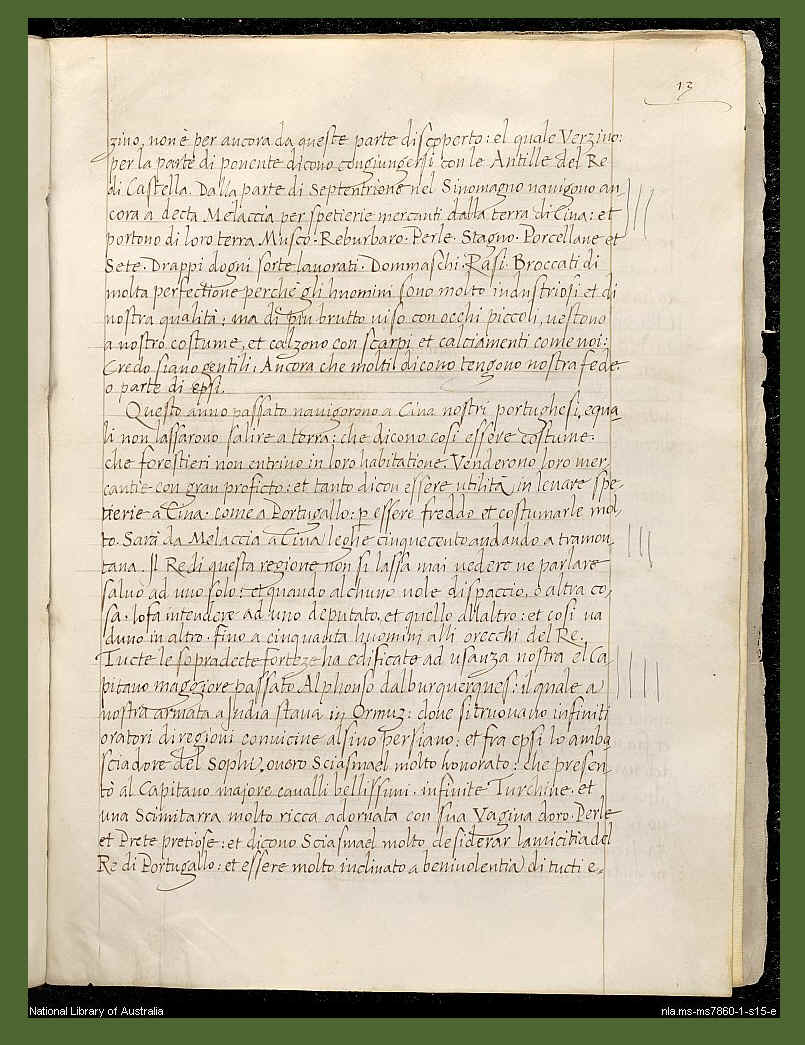 13
zino, non è per ancora da queste parte discoperto: el quale Verzino:
per la parte di ponente dicono congiungersi con le Antille del Re
di Castella. Dalla parte di Septentrione nel Sinomagno navigono an-
cora a decta Melaccia per spetierie mercanti dalla terra di Cina: et
portono di loro terra Musco. Reburbaro. Perle. Stagno. Porcellane et
Sete. Drappi dogni sorte lavorati. Dommaschi. Rasi. Broccati di
molta perfectione perche gli huomini sono molto industriosi et di
nostra qualità: ma di più brutto viso con occhi piccoli, vestono
a nostro costume, et calzono con scarpi et calciamenti come noi:
Credo siano gentili, Ancora che molti dicono tengono nostra fede
o parte di epsi.
Questo anno passato navigorono a Cina nostri portughesi, equa-
li non lassarono salire a terra: che dicono cosi essere costume.
che forestieri non entrino in loro habitatione. Venderono loro mer-
cantie con gran proficto: et tanto dicon essere utilità in levare spe-
tierie a Cina. come a Portugallo: p essere freddo et costumarle mol-
to. Sarà da Melaccia a Cina leghe cinquecento andando a tramon-
tana. Il Re di questa regione non si lassa mai vedere ne parlare
salvo ad uno solo: et quando alchuno vole dispaccio, o altra co-
sa. lo fa intendere ad uno deputato, et quello allaltro: et cosi va
duno in altro. fino a cinquanta huomini alli orecchi del Re.
Tucte le sopradecte forteze ha edificate ad usanza nostra el Ca-
pitano maggiore passato Alphonso dalburquerques: il quale a
nostra armata a Jndia stava in Ormuz: dove si truovano infiniti
oratori di regioni convicine al sino persiano: et fra epsi lo amba
sciadore del Sophi. overo Sciasmael molto honorato: che presen-
tò al Capitano majore cavalli bellissimi. infinite Turchine. et
una Scimitarra molto ricca adornata con sua Vagina doro. Perle
et Prete pretiose: et dicono Sciasmael molto desiderar lamicitia del
Re di Portugallo: et essere molto inclinato a benivolentia di tucti e.
National Library of Australia
nla.ms-ms7860-1-s15-e